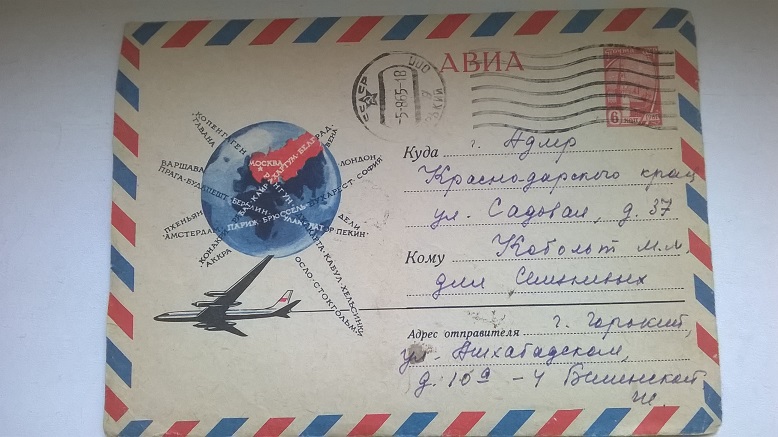 АВИА
-5-8 65-18
6
КОПЕНГАГЕН
ГАВАНА
ВЕНА
ВАРШАВА
ЛОНДОН
ПРАГА·БУДАПЕШТ·БЕРЛИН
БУХАРЕСТ·СОФИЯ
МОСКВА
ХАРТУМ·БЕЛГРАД
РАНГУН
КАИР
ПХЕНЬЯН
ДЕЛИ
АМСТЕРДАМ
ПАРИЖ БРЮССЕЛЬ УЛАН-БАТОР ПЕКИН
КОНАКРИ
АККРА
КАБУЛ·ХЕЛЬСИНКИ
ОСЛО·СТОКГОЛЬМ
Куда г. Адлер
Краснодарского края
ул. Садовая, д. 37
Кому Кобольт М.М.
для Семкиных
Адрес отправителя г. Горький,
ул. Ашхабадская,
д. 10а - 4